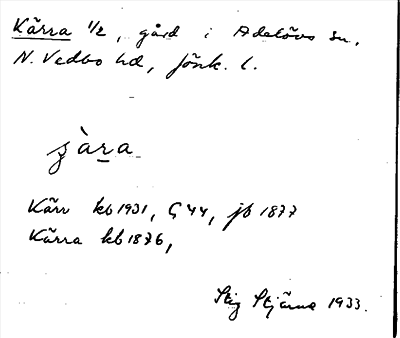 Kärra 1/2, gård i Adelövs sn,
N. Vedbo hd, Jönk. l.
Kärr kb 1931, G 44, jb 1877
Kärra kb 1876,
Stig Stjärna 1933.